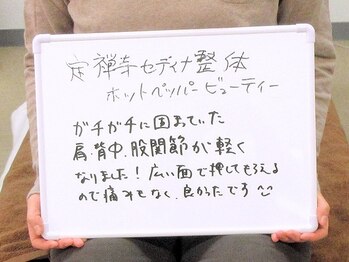 定禅寺セディナ整体
ホットペッパービューティー
ガチガチに固まっていた
肩、背中、股関節が軽く
なりました！広い面で押してもらえる
ので痛みもなく、良かったです